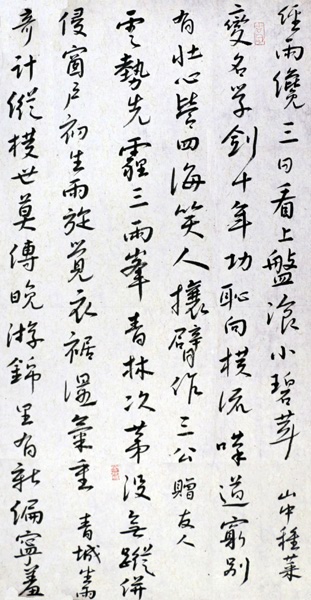 經雨纔三日看上盤湌小碧茸 山中種菜
變名学劍十年功恥向橫流嘆道窮別
有壯心四海笑人攘臂作三公贈友人
雲勢先霾三兩峯青林次第沒無蹤併
侵窗戶初生雨旋覺衣裾溼氣重 青城
奇計縱橫世莫傳晚游錦里有新編寧羞